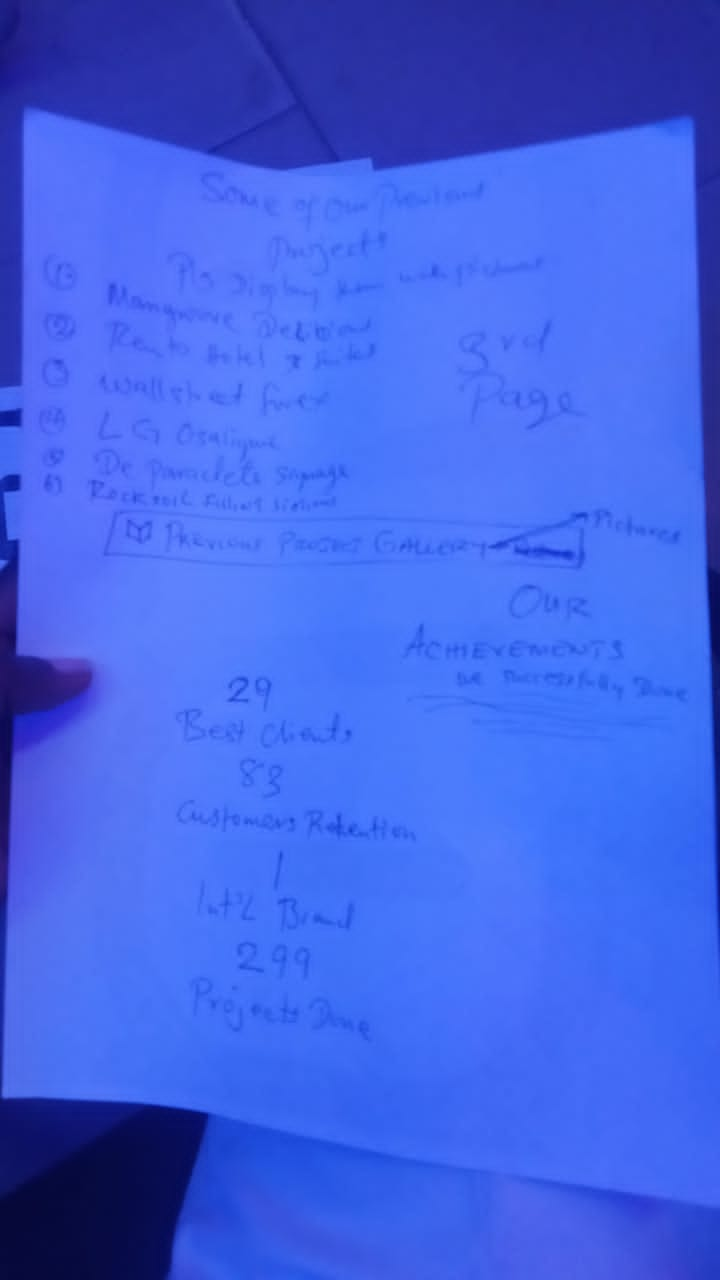 Some of Our Previous
Projects
Pls Display them with pictures
(1) Mangrove
(2) Hotel & Suites
(3) Wallstreet forex
(4) L G
(5) De paraclete signage
(6) Rocksoil filling stations
3rd
Page
PREVIOUS PROJECT GALLERY
Pictures
OUR
ACHIEVEMENTS
we successfully Done
29
Best Clients
83
Customers Retention
1
Int'L Brand
299
Projects Done